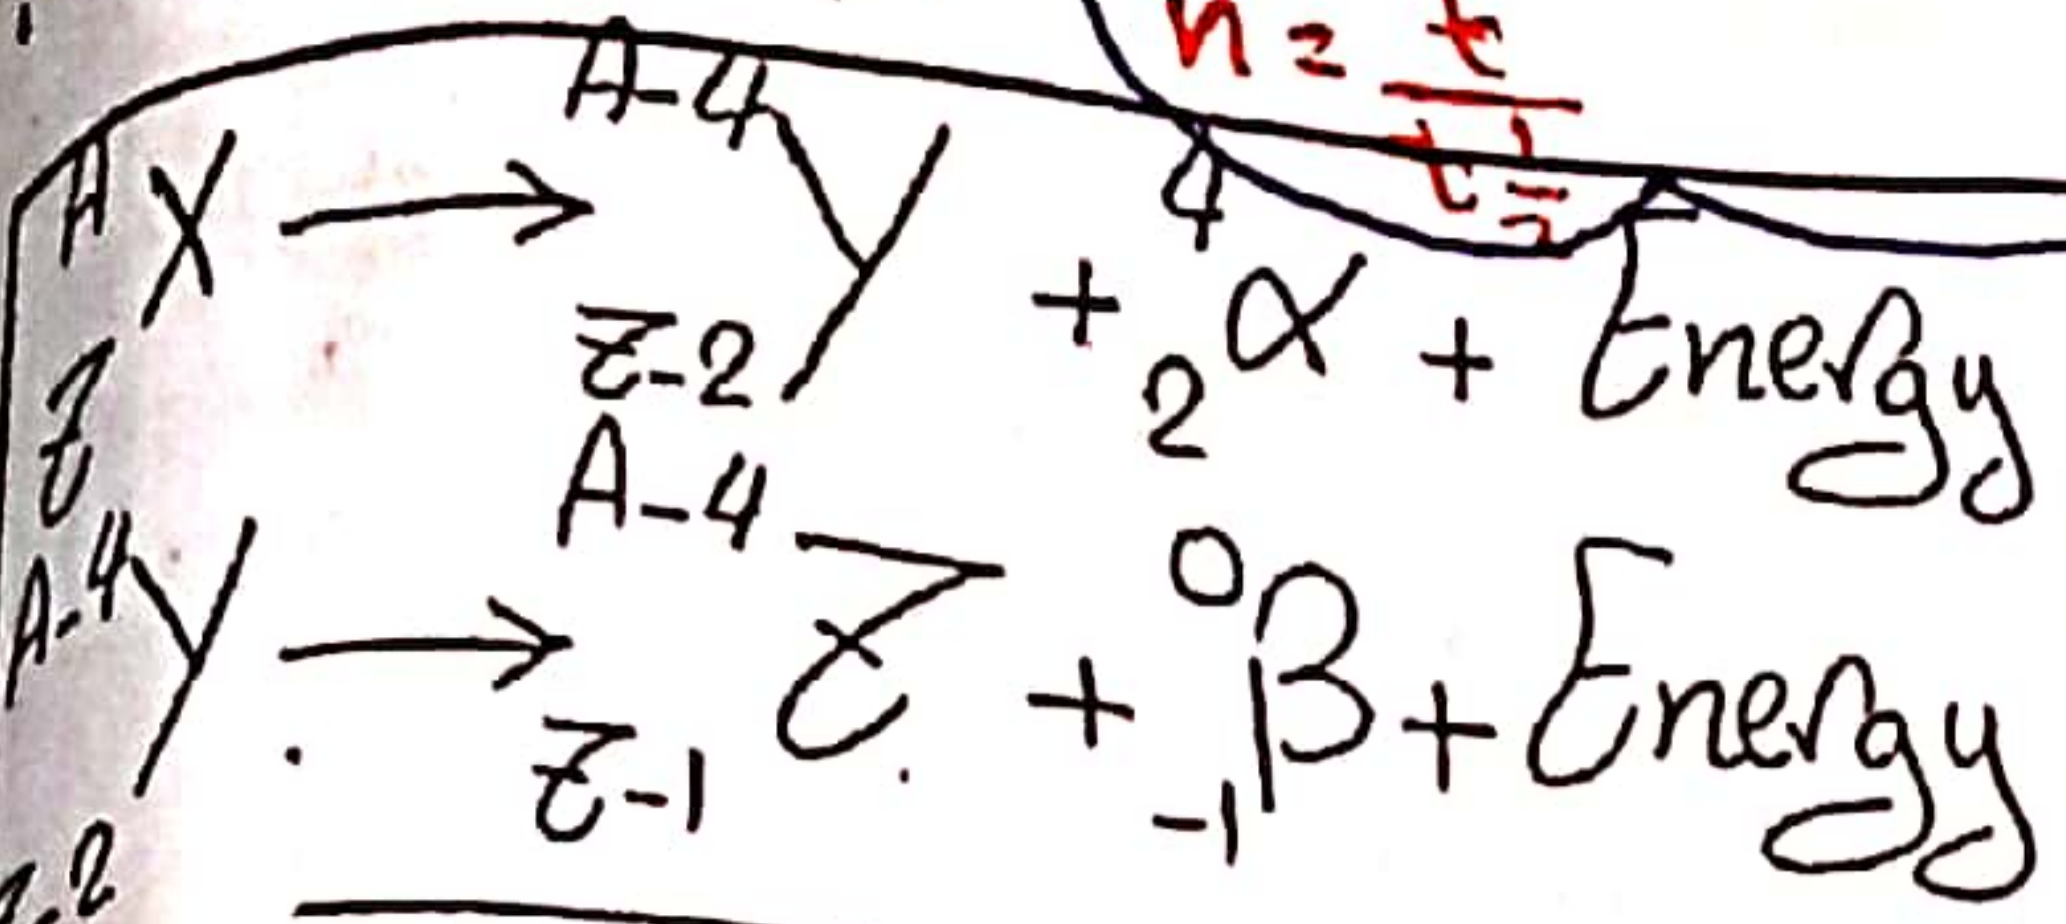 n = t / t½
ᴬ_Z X → ᴬ⁻⁴_Z-2 Y + ⁴₂α + Energy
ᴬ⁻⁴_Z-2 Y → ᴬ⁻⁴_Z-1 Z + ⁰₋₁β + Energy